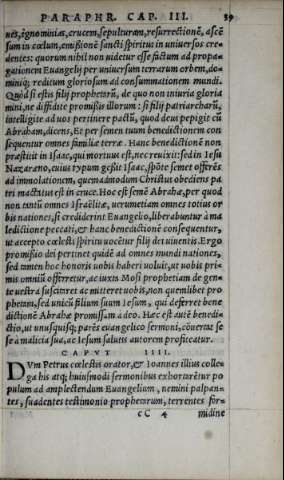 PARAPHR. CAP. III. 39
nes, ignominias, crucem, sepulturam, resurrectionē, ascē
sum in cœlum, emissionē sancti spiritus in uniuersos cre⸗
dentes: quorum nihil non uidetur esse factum ad propa⸗
gationem Euangelij per uniuersum terrarum orbem, do⸗
miniq; reditum gloriosum ad consummationem mundi.
Quòd si estis filij prophetarū, de quo non iniuria gloria
mini, ne diffidite promißis illorum: si filij patriarcharū,
intelligite ad uos pertinere pactū, quod deus pepigit cū
Abraham, dicens, Et per semen tuum benedictionem con
sequentur omnes familiæ terræ. Hanc benedictionē non
præstitit in Isaac, qui mortuus est, nec reuixit: sed in Iesu
Nazaræno, cuius typum gessit Isaac, spōte semet offerēs
ad immolationem, quemadmodum Christus obediens pa
tri mactatus est in cruce. Hoc est semē Abrahæ, per quod
non tantū omnes Israëlitæ, uerumetiam omnes totius or
bis nationes, si crediderint Euangelio, liberabuntur à ma
ledictione peccati, & hanc benedictionē consequentur,
ut accepto cœlesti spiritu uocētur filij dei uiuentis. Ergo
promissio dei pertinet quidē ad omnes mundi nationes,
sed tamen hoc honoris uobis haberi uoluit, ut uobis pri⸗
mis omniū offerretur, ac iuxta Mosi prophetiam de gen⸗
te uestra suscitaret ac mitteret uobis, non quemlibet pro
phetam, sed unicū filium suum Iesum, qui deferret bene
dictionē Abrahæ promissam à deo. Hæc est autē benedi⸗
ctio, ut unusquisq; parēs euangelico sermoni, cōuertat se
se à malicia sua, ac Iesum salutis autorem proficeatur.
CAPVT IIII.
DVm Petrus cœlestis orator, & Ioannes illius colle⸗
ga his atq; huiusmodi sermonibus exhortarētur po
pulum ad amplectendum Euangelium, nemini palpan⸗
tes, suadentes testimonio prophetarum, terrentes for⸗
cC 4 midine